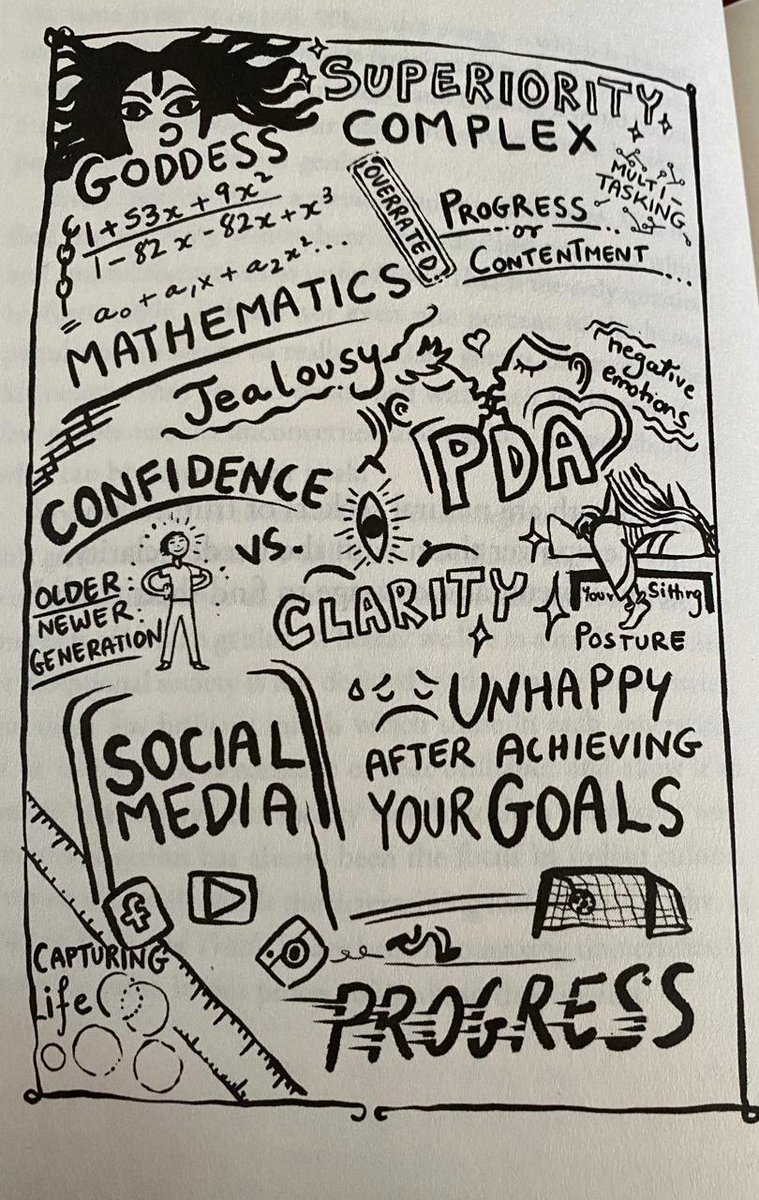 SUPERIORITY
COMPLEX
GODDESS
1+53x+9x²
1-82x-82x+x³
= a₀+a₁x+a₂x²...
MATHEMATICS
OVERRATED
PROGRESS
or
CONTENTMENT
MULTI-
TASKING
Jealousy
negative
emotions
PDA
CONFIDENCE
VS.
CLARITY
OLDER:
NEWER:
GENERATION
Your Sitting
POSTURE
SOCIAL
MEDIA
UNHAPPY
AFTER ACHIEVING
YOUR GOALS
CAPTURING
Life
PROGRESS